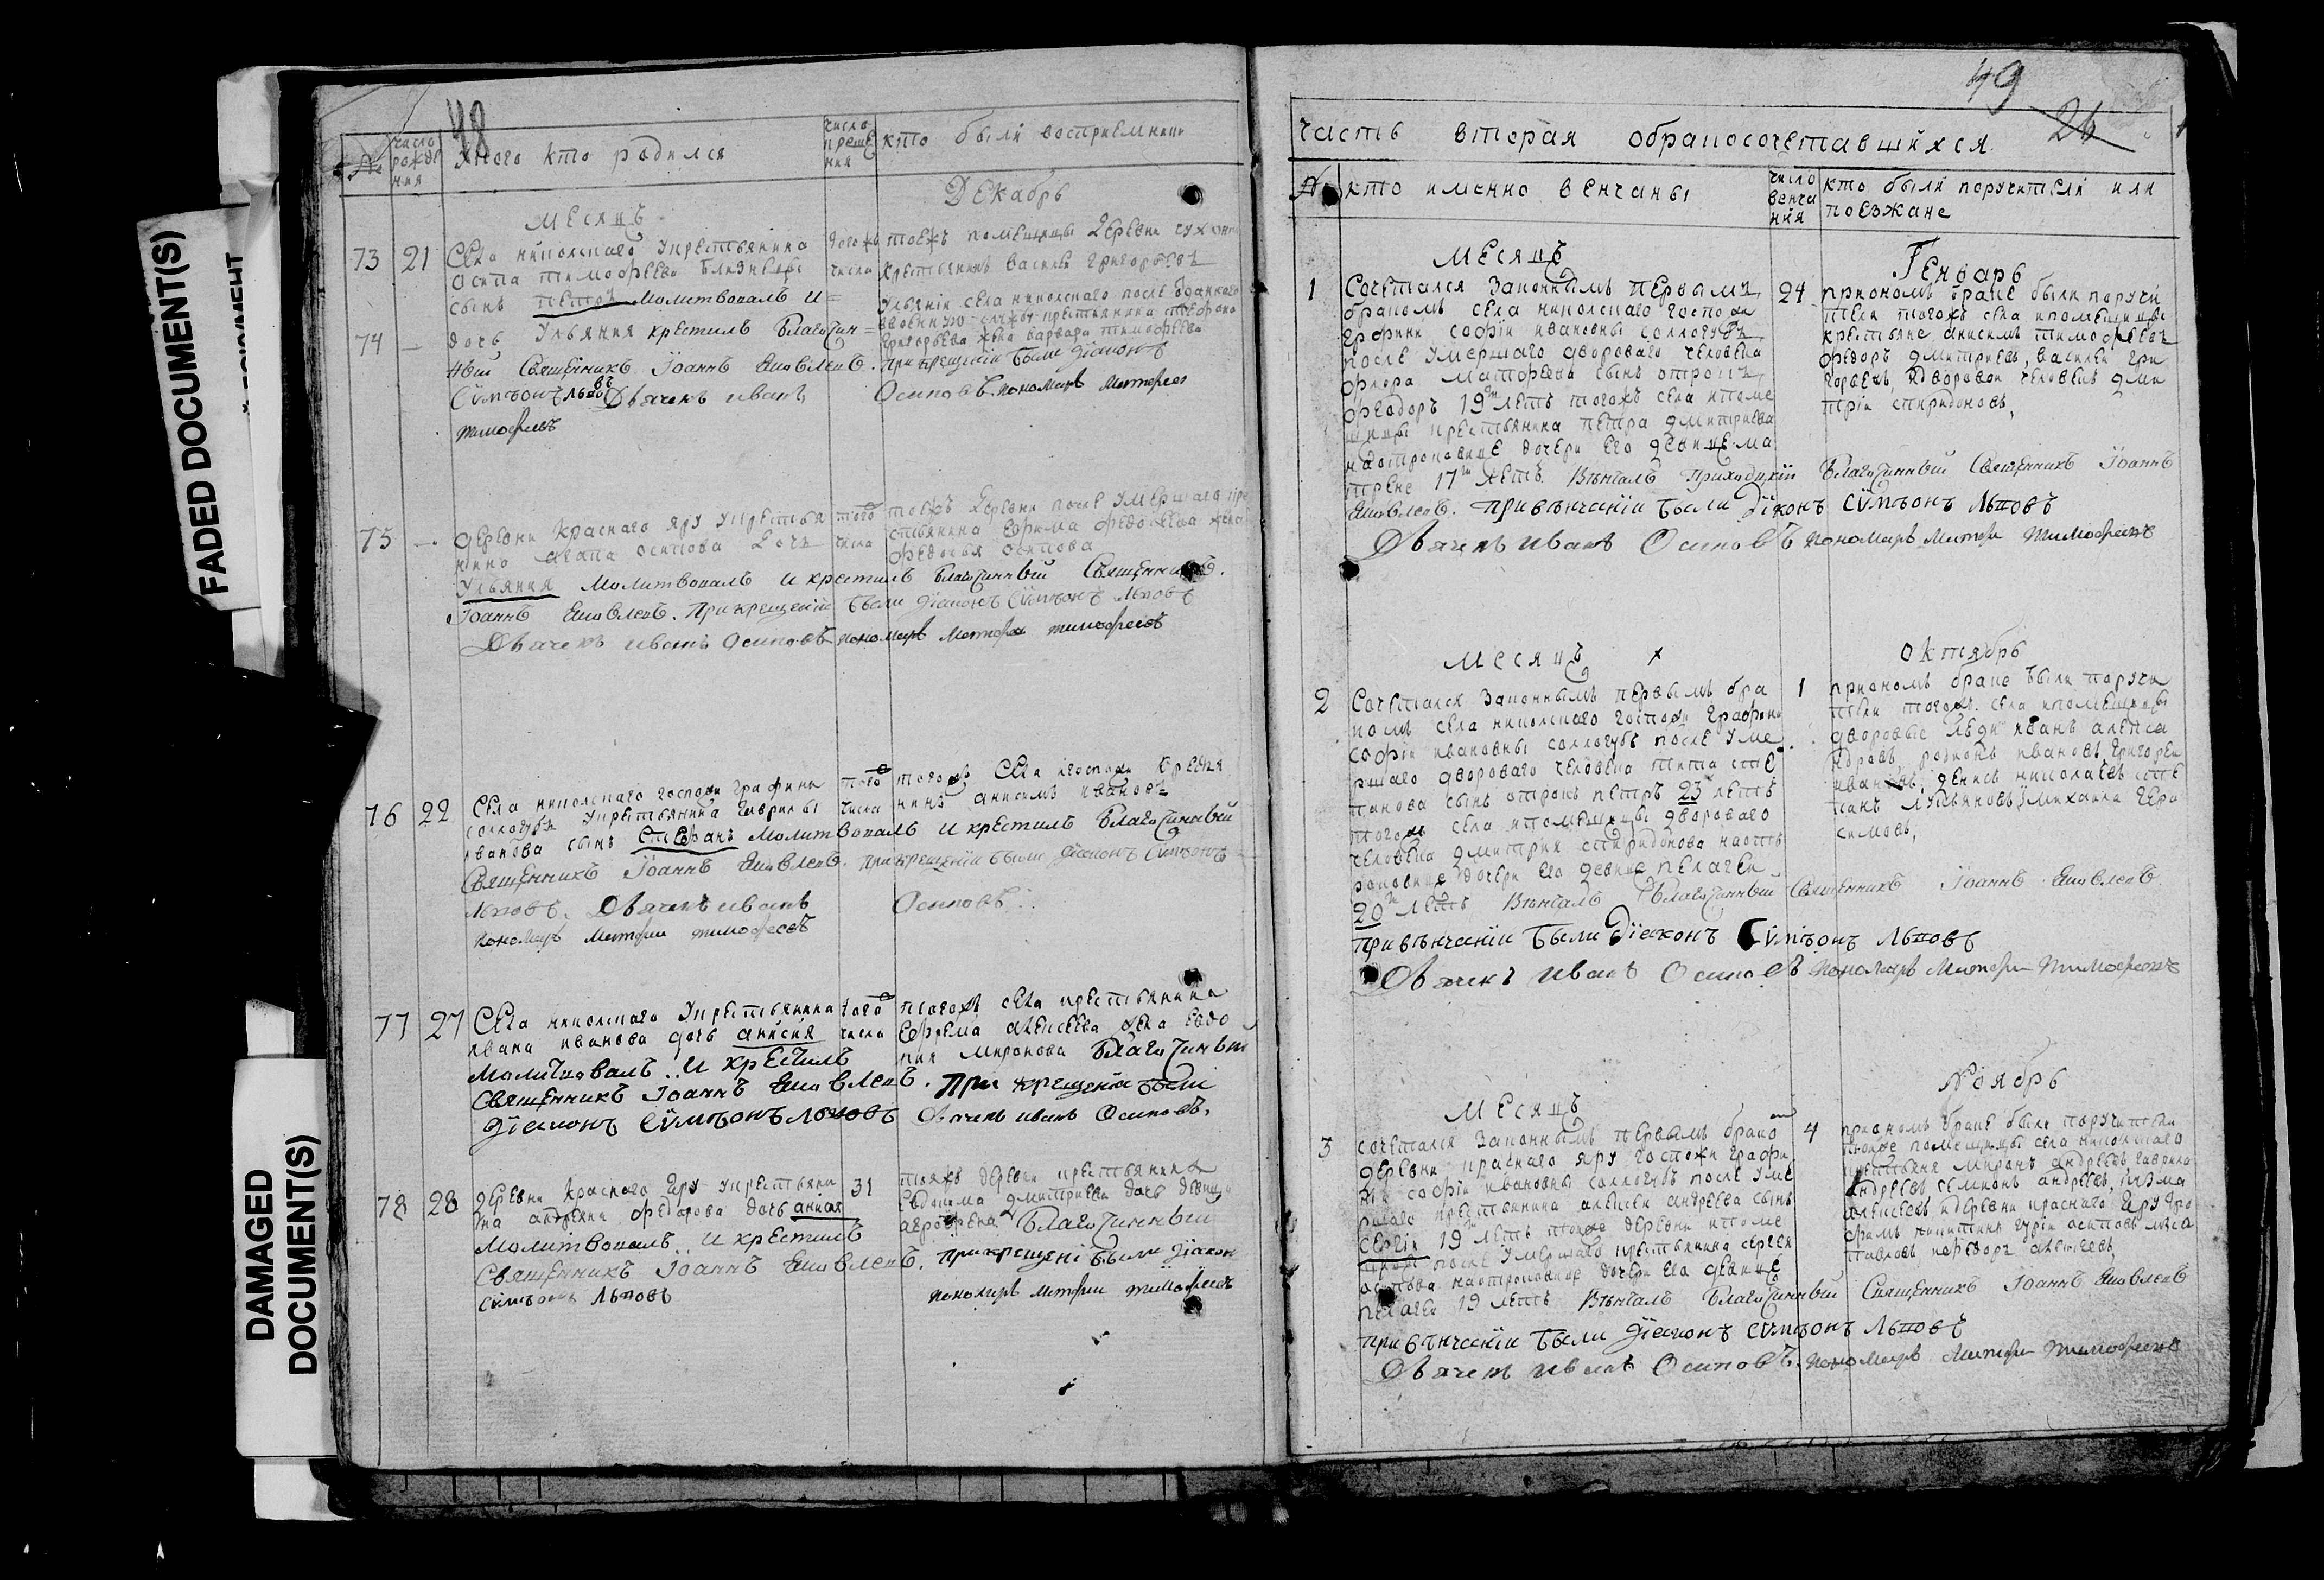 FADED DOCUMENT(S)
DAMAGED
DOCUMENT(S)
48
№
число рожде ния
Укого кто родился
число креще ния
кто были восприемники
Месяцъ
Декабрь
73 21 Села никольскаго Укрестьянина
Осипа тимофеева близнецы
сынъ петръ Молитвовалъ и
74 — дочь Ульяния крестилъ Благочин=
ный Священникъ Іоаннъ Яковлевъ.
Сѵмѣонъ Львовъ Дьячекъ иванъ
тимофеевъ
тогожъ числа
тоежъ помещицы деревни
крестьянинъ василеи григорьевъ
Ульяніи села никольскаго после отданнаго
григорьева жена варвара тимофеева
при крещеніи были діаконъ
Осиповъ пономарь Митрофан
75 — деревни Краснаго яру Укрестья
нина агапа осипова дочь
Ульяния Молитвовалъ и крестилъ благочинный Священникъ.
Іоаннъ Яковлевъ. При крещеніи были діаконъ Сѵмѣонъ Львовъ
Дьячекъ иванъ Осиповъ пономарь тимофеевъ
того числа
тоежъ деревни после Умершаго кре
стьянина ефима федосеева жена
федосья осипова
76 22 Села никольскаго госпожи графини
соллогубъ Укрестьянина гаврилы
иванова сынъ Стефанъ Молитвовалъ и крестилъ Благочинный
Священникъ Іоаннъ Яковлевъ. при крещеніи были діаконъ Сѵмѣонъ
Львовъ. Дьячекъ иванъ Осиповъ
пономарь тимофеевъ
того числа
тогожъ Села игоспожи крестья
нинъ анисимъ ивановъ
77 27 Села никольскаго Укрестьянина
ивана иванова дочь анисия
Молитвовалъ и крестилъ
Священникъ Іоаннъ Яковлевъ. При крещеніи были
діаконъ Сѵмѣонъ Львовъ Дьячекъ иванъ Осиповъ.
того числа
тогожъ села крестьянина
ефрема алексеева жена евдо
кия миронова Благочинный
78 28 деревни Краснаго Яру Укрестьяни
на андреяна федорова дочь анисия
Молитвовалъ и крестилъ
Священникъ Іоаннъ Яковлевъ. при крещеніи были діаконъ
Сѵмѣонъ Львовъ
31
тояжъ деревни крестьянина
евдокима дмитриева дочь девица
агрофена Благочинный
пономарь тимофеевъ
49
26
часть вторая обракосочетавшихся
№
кто именно венчаны
число венча ния
кто были поручители или
поезжане
Месяцъ
Генварь
1 Сочетался Законнымъ первымъ
бракомъ села никольскаго госпожи
графини софіи ивановны соллогубъ
после Умершаго двороваго человека
фрола матфеева сынъ отрокъ
феодоръ 19ти летъ тогожъ села ипоме
щицы крестьянина петра дмитриева
наотроковице дочери его девице ма
трене 17ти летъ. Вѣнчалъ Приходскій Благочинный Священникъ Іоаннъ
Яковлевъ. при вѣнчаніи были Діаконъ Сѵмѣонъ Львовъ
Дьячекъ иванъ Осиповъ пономарь тимофеевъ
24
приономъ браке были поручи
тели тогожъ села ипомещицы
крестьяне анисимъ тимофеевъ
федоръ дмитриевъ, василеи гри
горьевъ, идворовои человекъ дми
трiи спиридоновъ,
Месяцъ
Октябрь
2 Сочетался Законнымъ первымъ бра
комъ села никольскаго госпожи графини
софіи ивановны соллогубъ после Уме
ршаго двороваго человека тита сте
панова сынъ отрокъ петръ 23 летъ
тогожъ села ипомещицы двороваго
человека дмитрия спиридонова наот
роковице дочери его девице пелагеи
20ти летъ Вѣнчалъ Благочинный Священникъ Іоаннъ Яковлевъ
при вѣнчаніи были Діаконъ Сѵмѣонъ Львовъ
Дьячекъ иванъ Осиповъ пономарь тимофеевъ
1
приономъ браке были поручи
тели тогожъ села ипомещицы
дворовые люди иванъ алекса
ндровъ, родионъ ивановъ, григореи
ивановъ, денисъ николаевъ сте
панъ лукьяновъ, имихаила гера
симовъ,
Месяцъ
Ноябрь
3 сочетался Законнымъ первымъ брако
деревни краснаго яру госпожи графи
ни софіи ивановны соллогубъ после Уме
ршаго крестьянина алексея андреева сынъ
Сергіи 19 летъ тоиже деревни ипоме
после Умершаго крестьянина сергея
осипова наотроковице дочери его девице
пелагеи 19 летъ Вѣнчалъ Благочинный Священникъ Іоаннъ Яковлевъ
при вѣнчаніи были діаконъ Сѵмѣонъ Львовъ
Дьячекъ иванъ Осиповъ. пономарь тимофеевъ
4
приономъ браке были поручители
тоиже помещицы села никольскаго
крестьяня миронъ андреевъ, гаврила
андреевъ семионъ андреевъ, козма
алексеевъ идеревни краснаго яру
гурiи осиповъ
павловъ ифедоръ алексеевъ